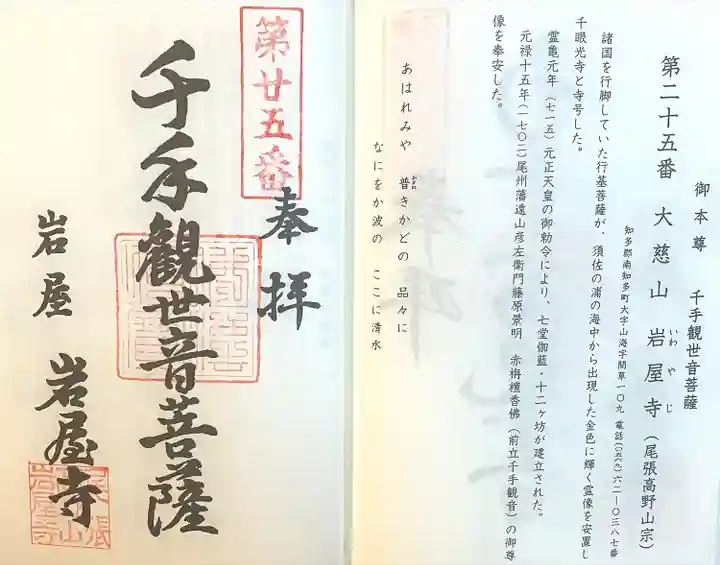 御本尊 千手観世音菩薩
第二十五番 大慈山 岩屋寺(尾張高野山宗)
いわ や じ
知多郡南知多町大字山海字間草一〇九 電話(〇五六九)六二―〇三八七番
諸国を行脚していた行基菩薩が、須佐の浦の海中から出現した金色に輝く霊像を安置し
千眼光寺と寺号した。
霊亀元年(七一五)元正天皇の御勅令により、七堂伽藍・十二ヶ坊が建立された。
元禄十五年(一七〇二)尾州藩遠山彦左衛門藤原景明 赤栴檀香佛(前立千手観音)の御尊
像を奉安した。
あはれみや 普きかどの 品々に
あまね
なにをか波の ここに清水
第廿五番
奉拝
千手観世音菩薩
岩屋 岩屋寺
尾張
山
岩屋寺